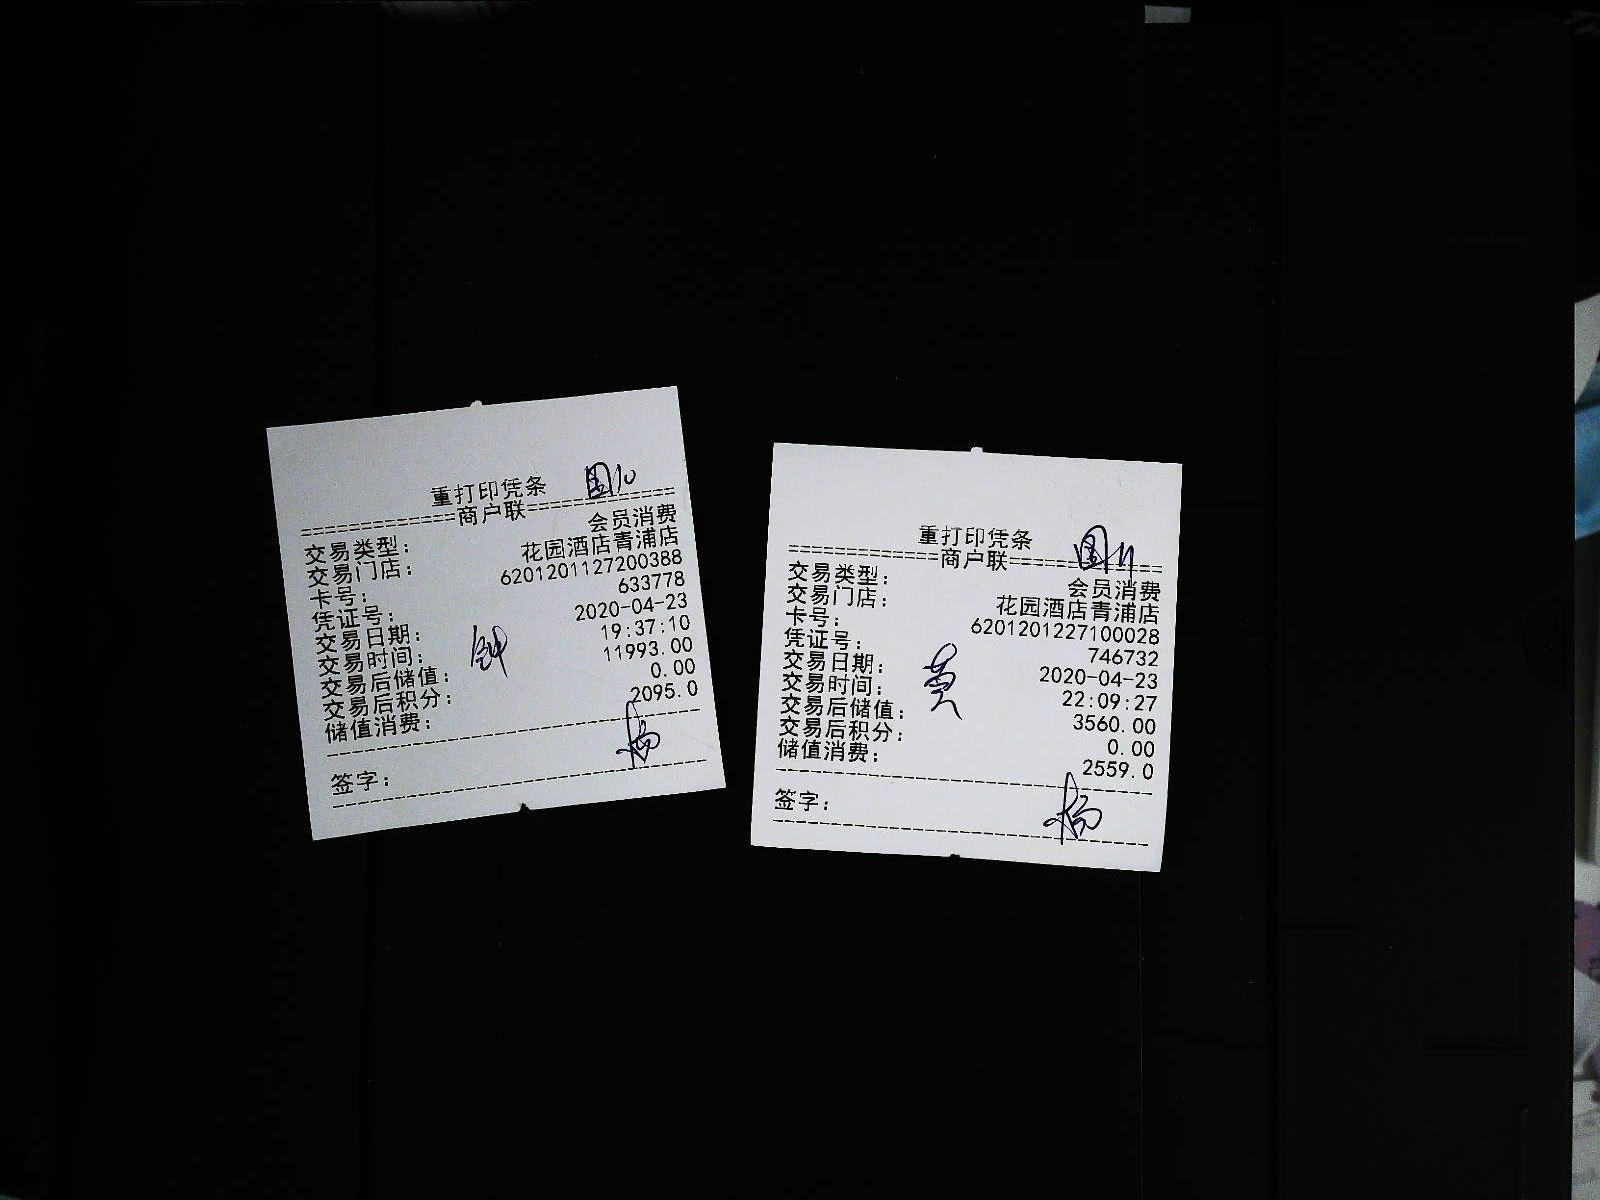 重打印凭条 圆10
=============商户联=============
交易类型: 会员消费
交易门店: 花园酒店青浦店
卡号: 6201201127200388
凭证号: 633778
交易日期: 2020-04-23
交易时间: 19:37:10
交易后储值: 11993.00
交易后积分: 0.00
储值消费: 2095.0
钟
签字: 杨
重打印凭条 圆11
=============商户联=============
交易类型: 会员消费
交易门店: 花园酒店青浦店
卡号: 6201201227100028
凭证号: 746732
交易日期: 2020-04-23
交易时间: 22:09:27
交易后储值: 3560.00
交易后积分: 0.00
储值消费: 2559.0
黄
签字: 杨